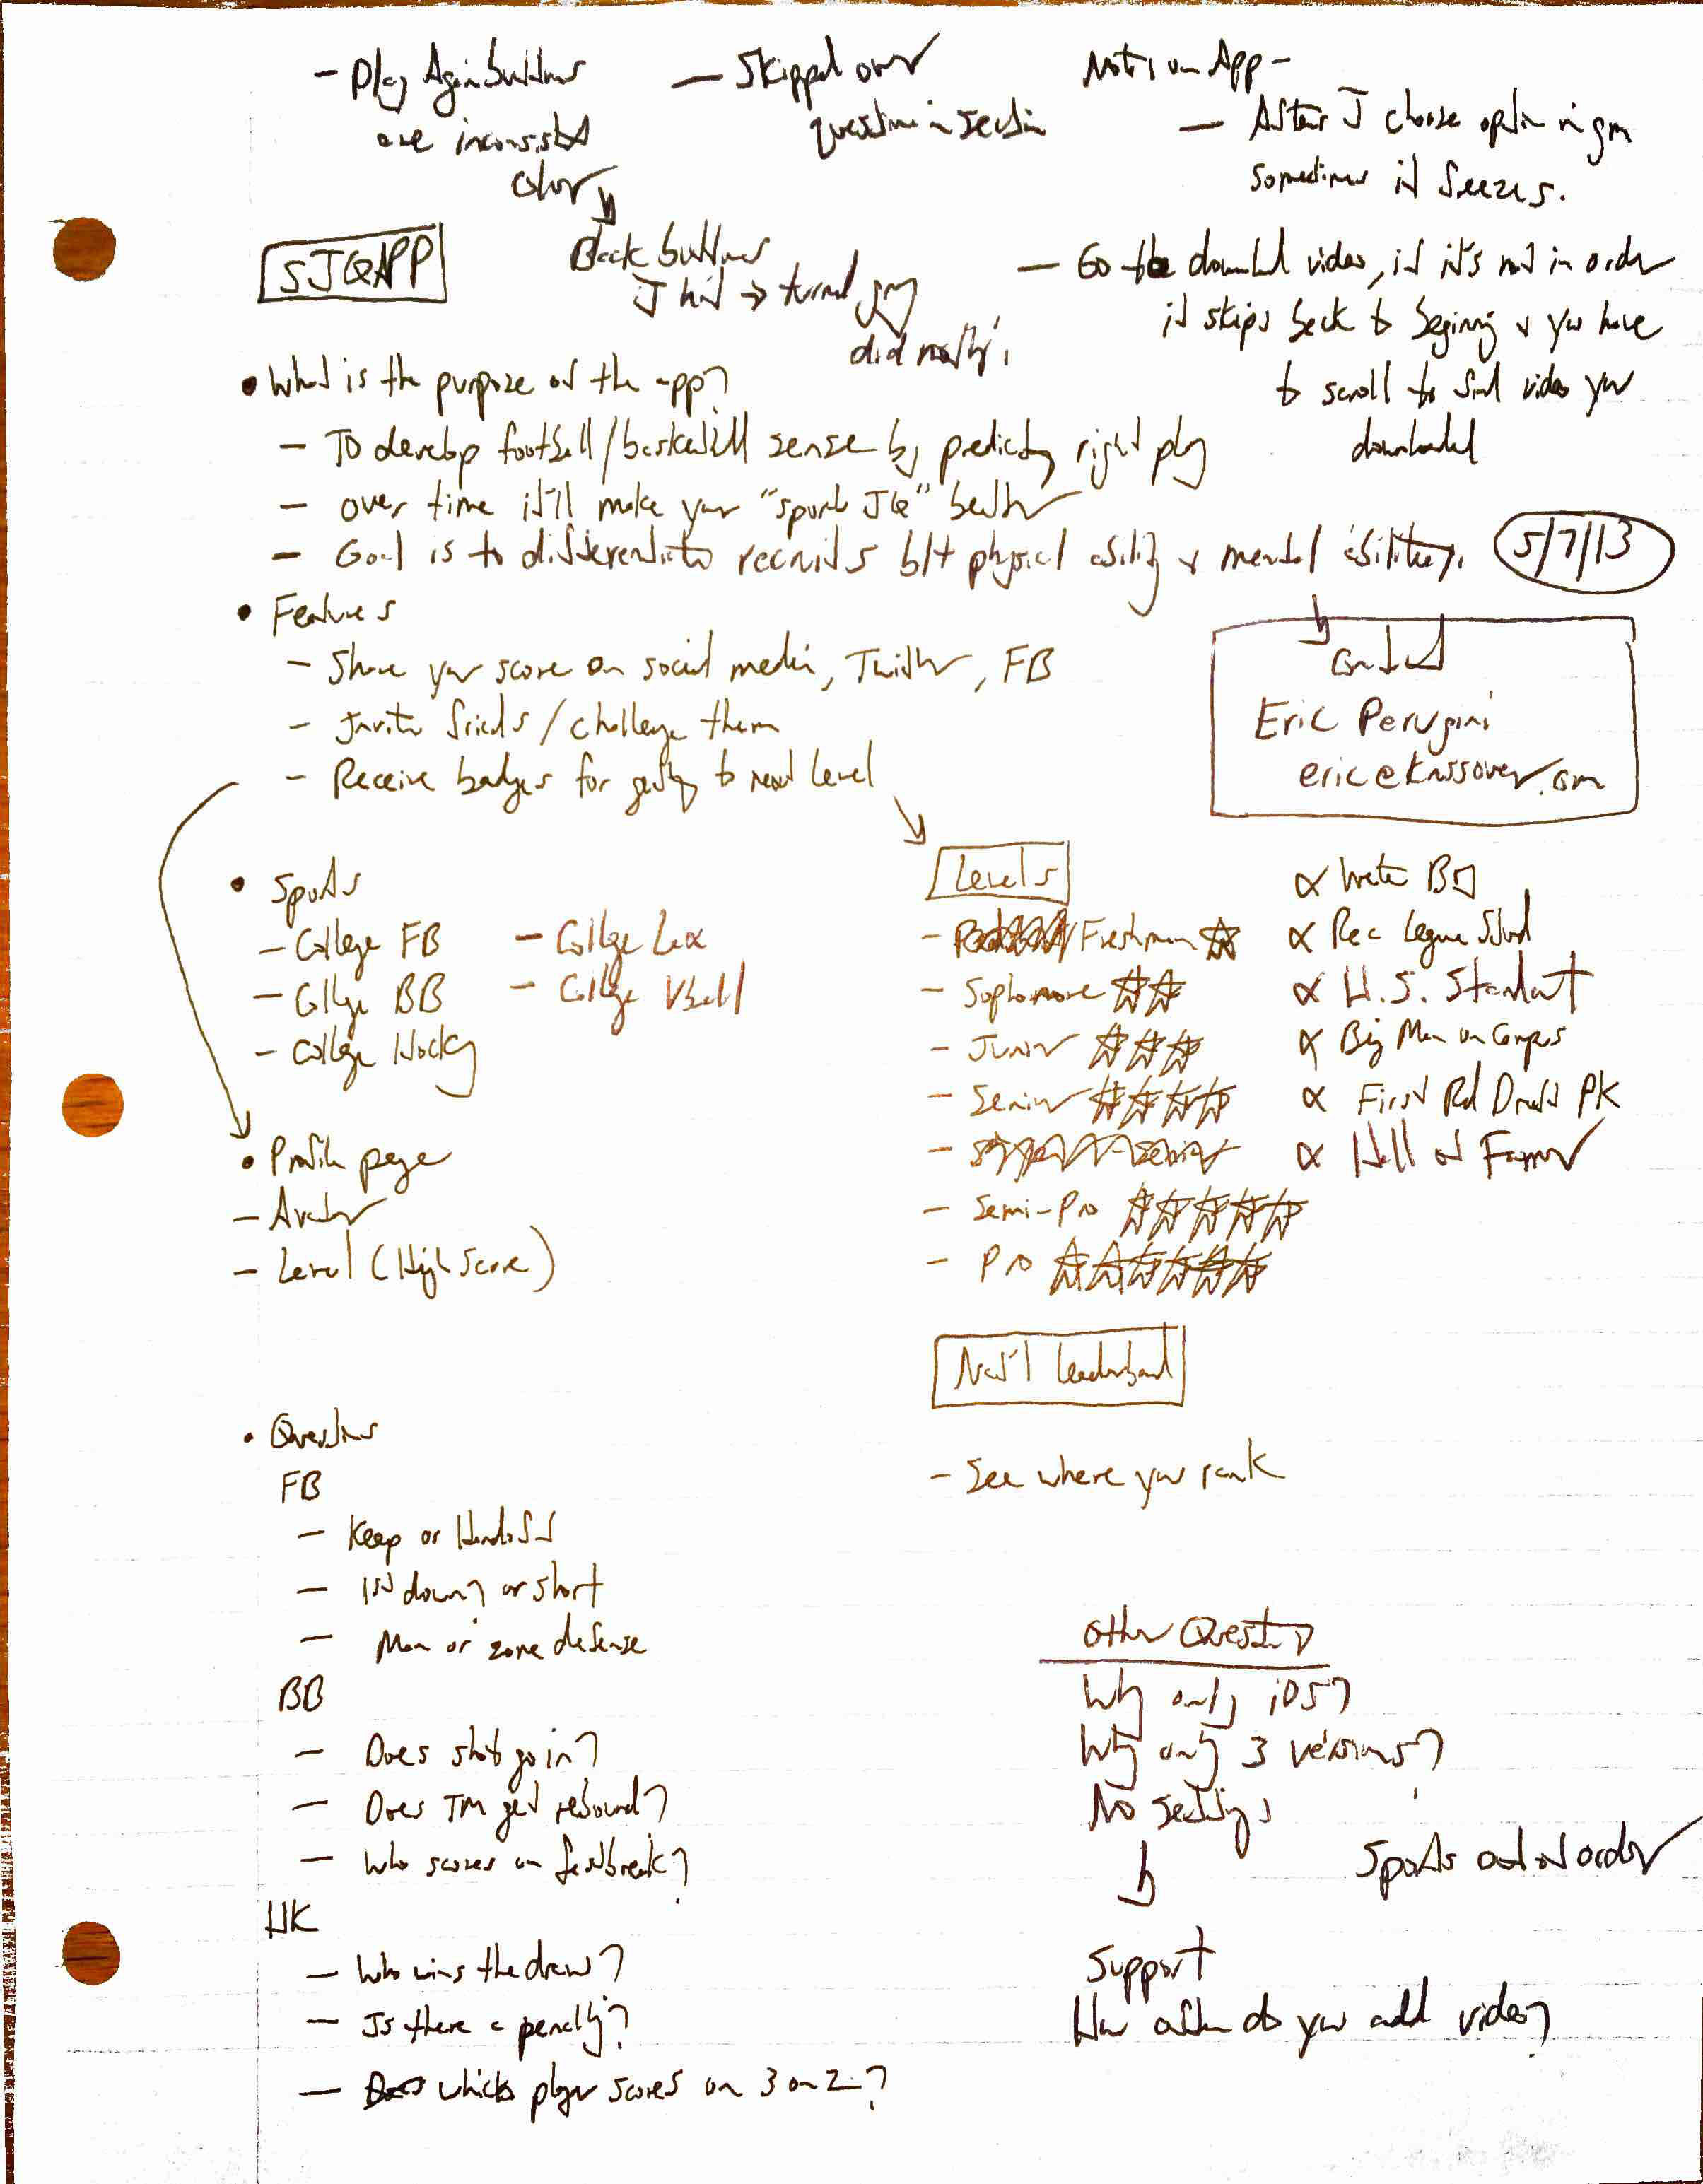 - Play Again buttons
are inconsistent
color
- Skipped over
question in section
Notes on App -
- After I choose option in gm
sometimes it freezes.
Back buttons
I hit → turned gray
did nothing.
- Go to download video, if it's not in order
it skips back to beginning & you have
to scroll to find video you
downloaded
SIQ APP
• What is the purpose of the app?
- To develop football/basketball sense by predicting right play
- over time it'll make your "sports IQ" better
- Goal is to differentiate recruits b/t physical ability & mental ability.
5/7/13
• Features
- Share your score on social media, Twitter, FB
- Invite friends/challenge them
- Receive badges for getting to next level
Contact
Eric Perugini
eric@krossover.com
• Sports
- College FB
- College BB
- College Hockey
- College Lax
- College Vball
Levels
- Freshman ☆
- Sophomore ☆☆
- Junior ☆☆☆
- Senior ☆☆☆☆
- Semi-Pro ☆☆☆☆☆
- Pro ☆☆☆☆☆☆
∝ Water Boy
∝ Rec League Stud
∝ H.S. Standout
∝ Big Man on Campus
∝ First Rd Draft Pk
∝ Hall of Famer
• Profile page
- Avatar
- Level (High Score)
Nat'l leaderboard
- See where you rank
• Questions
FB
- Keep or Handoff
- 1st down? or short
- Man or zone defense
BB
- Does shot go in?
- Does TM get rebound?
- Who scores on fastbreak?
HK
- Who wins the draw?
- Is there a penalty?
- which player scores on 3 on 2?
Other Questions
Why only iOS?
Why only 3 versions?
No settings
Sports out of order
Support
How often do you add video?